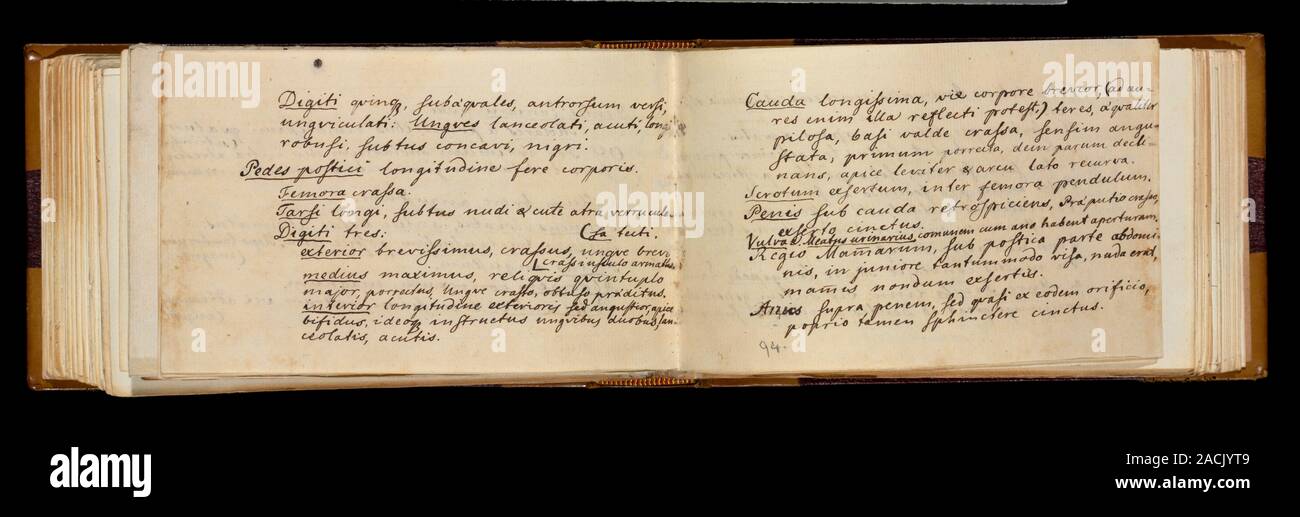 Digiti quinq, subæquales, antrorsum versi,
unguiculati: Ungues lanceolati, acuti, long
robusi, subtus concavi, nigri.
Pedes postici longitudine fere corporis.
Femora crassa.
Tarsi longi, subtus nudi & cute atra verrucu-
Digiti tres: (sa tecti.
exterior brevissimus, crassus, ungue brevi
crassiusculo armatus
medius maximus, reliquis quintuplo
major, porrectus, Ungue crasso, obtuso præditus.
interior longitudine exterioris sed angustior, apice
bifidus, ideoq instructus unguibus duobus, lan-
ceolatis, acutis.
Cauda longissima, vix corpore brevior, (ad au-
res enim illa reflecti potest,) teres, æqualiter
pilosa, basi valde crassa, sensim angu-
stata, primum porrecta, dein parum decli-
nans, apice leviter & arcu lato recurva.
Scrotum exsertum, inter femora pendulum.
Penis sub cauda retrospiciens, Præputio crasso,
exserto cinctus.
Vulva & Meatus urinarius communem cum ano habent aperturam.
Regio Mam̄arum, sub postica parte abdomi-
nis, in juniore tantummodo visa, nuda erat,
mam̄is nondum exsertis.
Anus supra penem, sed quasi ex eodem orificio,
poprio tamen sphinctere cinctus.
94.
alamy
alamy
Image ID: 2ACJYT9
www.alamy.com